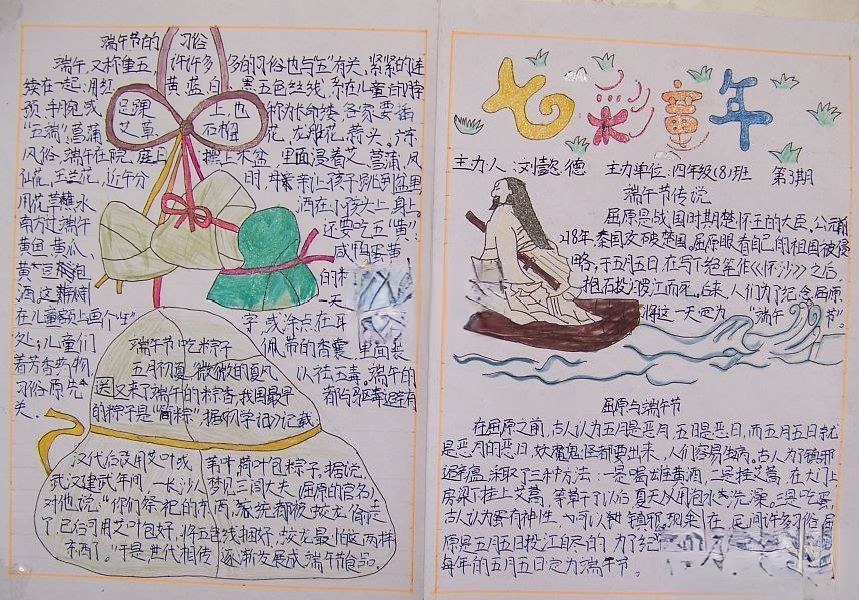 端午节的 习俗
端午,又称重五,许许多多的习俗也与"五"有关,紧紧的连
续在一起,用红 黄蓝白黑五色丝线,系在儿童的脖
颈,手腕或 足踝 上,也 称为长命缕,各家要插
"五端",菖蒲 艾草 石榴 花,
风俗,端午在院 庭上 摆上木盆,里面浸着艾、菖蒲、凤
仙花,玉兰花,近午分 时,母亲让孩子跳到盆里
用花草蘸水 洒在小孩头上,身上。
南方过端午 还要吃五"黄":
黄鱼,黄瓜, 咸鸭蛋黄,
黄豆 泡 的
酒,这 一天
在儿童额上画个"王" 字,或涂点在耳
处;儿童们 佩带的香囊 里面装
着芳香药物, 以祛五毒。端午的
习俗原先 都与驱瘟避
关。
端午节吃粽子
五月初夏,微微的夏风
送又来了端午的粽香,我国最早
的粽子是"筒粽",据《 》记载
汉代后改用艾叶或 苇叶荷叶包粽子。据说,
武汉建武年间,一长沙人梦见三闾大夫(屈原的官名)
对他说:"你们祭祀的东西,统统都被蛟龙偷走
了,已后可用艾叶包好,将五色线捆好,蛟龙最怕这两样
东西了。"于是世代相传 逐渐发展成端午节食品。
七彩童年
主力人: 刘懿德 主力单位:四年级(8)班 第3期
端午节传说
屈原是战国时期楚怀王的大臣。公元前
278年,秦国攻破楚国。屈原眼看自己的祖国被侵
略,于五月五日,在写下绝笔作《怀沙》之后,
抱石投汨罗江而死。后来,人们为了纪念屈原
将这一天定为 "端午 节"。
屈原与端午节
在屈原之前,古人认为五月是恶月,五日是恶日,而五月五日就
是恶月的恶日,妖魔鬼怪都要出来,人们容易生病。古人为了镇邪
避瘟,采取了三种方法:一是喝雄黄酒,二是挂艾蒿,在大门上
房梁下挂上艾蒿,等草干了以后,夏天人们用包水去洗澡。三是吃蛋
古人认为蛋有神性,可以 镇邪。现 在 民间许多习俗 屈
原是五月五日投江自尽的,为了纪
每年的五月五日定为端午节。